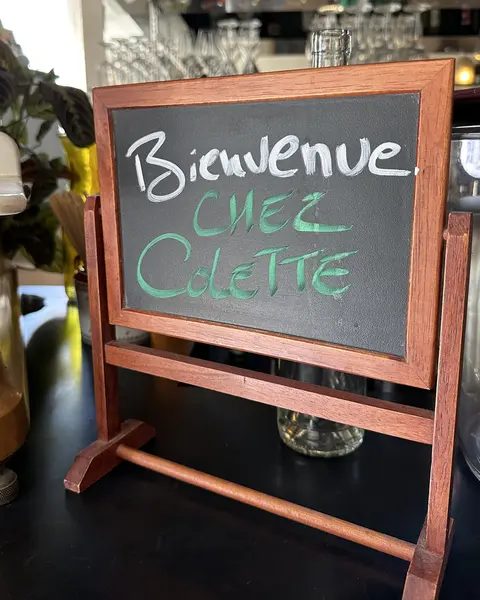 Bienvenue.
CHEZ
COLETTE